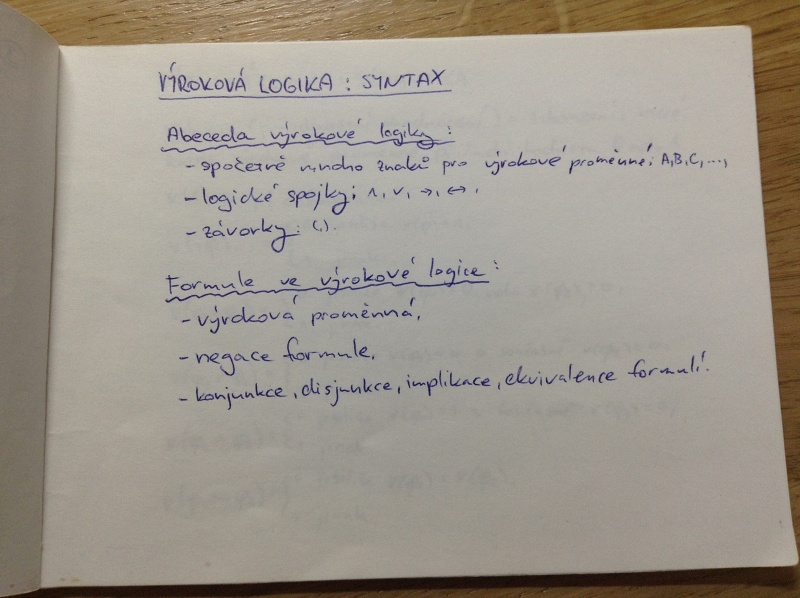 VÝROKOVÁ LOGIKA : SYNTAX
Abeceda výrokové logiky :
- spočetně mnoho znaků pro výrokové proměnné: A, B, C, ...,
- logické spojky: ∧, ∨, →, ↔,
- závorky: (,).
Formule ve výrokové logice :
- výroková proměnná,
- negace formule,
- konjunkce, disjunkce, implikace, ekvivalence formulí.